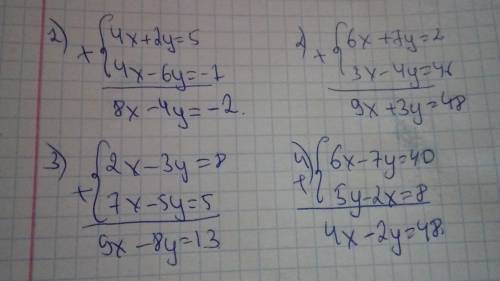 1) + { 4x+2y=5
4x-6y=-7
8x-4y=-2.
2) + { 6x+7y=2
3x-4y=46
9x+3y=48
3) + { 2x-3y=8
7x-5y=5
9x-8y=13
4) + { 6x-7y=40
5y-2x=8
4x-2y=48.